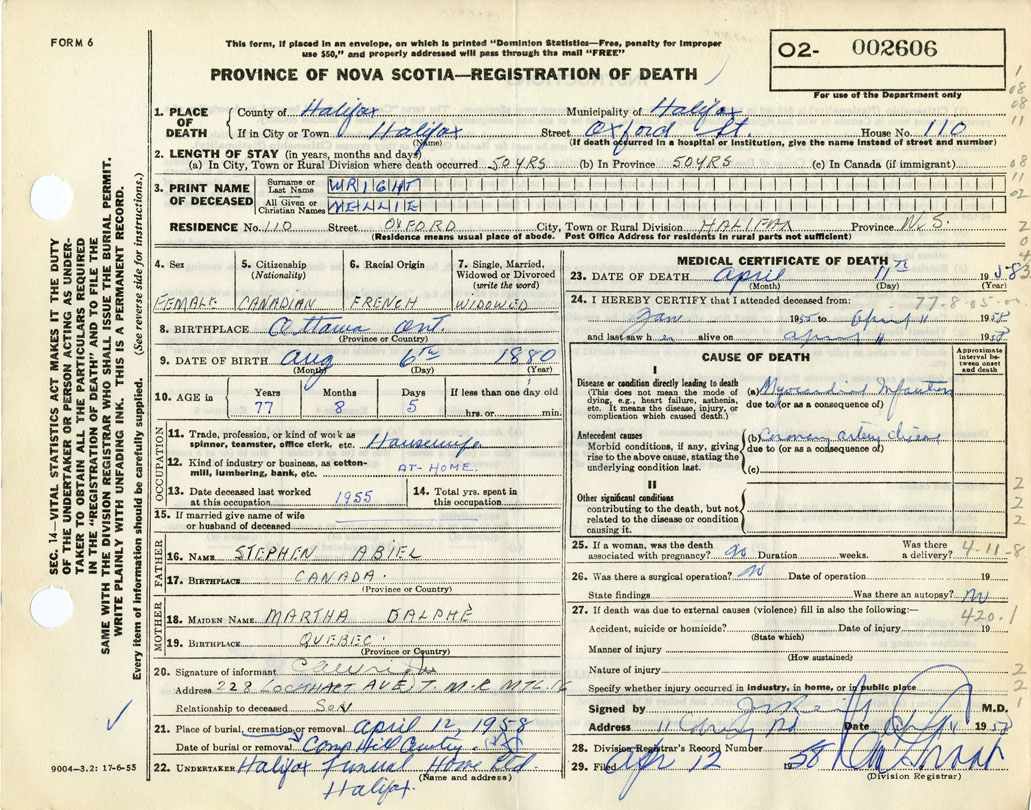 FORM 6
This form, if placed in an envelope, on which is printed "Dominion Statistics—Free, penalty for improper
use $50," and properly addressed will pass through the mail "FREE"
PROVINCE OF NOVA SCOTIA—REGISTRATION OF DEATH
02- 002606
For use of the Department only
1. PLACE OF DEATH
County of Halifax Municipality of Halifax
If in City or Town Halifax Street Oxford St. House No. 110
(Name) (If death occurred in a hospital or institution, give the name instead of street and number)
2. LENGTH OF STAY (in years, months and days)
(a) In City, Town or Rural Division where death occurred 50 YRS (b) In Province 50 YRS (c) In Canada (if immigrant)
3. PRINT NAME OF DECEASED
Surname or Last Name WRIGHT
All Given or Christian Names NELLIE
RESIDENCE No. 110 Street OXFORD City, Town or Rural Division HALIFAX Province N.S.
(Residence means usual place of abode. Post Office Address for residents in rural parts not sufficient)
4. Sex FEMALE
5. Citizenship (Nationality) CANADIAN
6. Racial Origin FRENCH
7. Single, Married, Widowed or Divorced (write the word) WIDOWED
8. BIRTHPLACE Ottawa Ont.
(Province or Country)
9. DATE OF BIRTH Aug 6th 1880
(Month) (Day) (Year)
10. AGE in Years 77 Months 8 Days 5 If less than one day old hrs. or min.
OCCUPATION
11. Trade, profession, or kind of work as spinner, teamster, office clerk, etc. Housewife
12. Kind of industry or business, as cotton-mill, lumbering, bank, etc. AT-HOME.
13. Date deceased last worked at this occupation 1955
14. Total yrs. spent in this occupation
15. If married give name of wife or husband of deceased
FATHER
16. NAME STEPHEN ABIEL
17. BIRTHPLACE CANADA.
(Province or Country)
MOTHER
18. MAIDEN NAME MARTHA GALPHÉ
19. BIRTHPLACE QUEBEC.
(Province or Country)
20. Signature of informant
Address 228 LOCKHART AVE T.M.R MTL. 16
Relationship to deceased SON
21. Place of burial, cremation or removal April 12 1958
Date of burial or removal Camp Hill
22. UNDERTAKER Halifax Funeral Home Ltd.
(Name and address)
Halifax.
9004—3.2: 17-6-55
SEC. 14—VITAL STATISTICS ACT MAKES IT THE DUTY
OF THE UNDERTAKER OR PERSON ACTING AS UNDER-
TAKER TO OBTAIN ALL THE PARTICULARS REQUIRED
IN THE "REGISTRATION OF DEATH" AND TO FILE THE
SAME WITH THE DIVISION REGISTRAR WHO SHALL ISSUE THE BURIAL PERMIT.
WRITE PLAINLY WITH UNFADING INK. THIS IS A PERMANENT RECORD.
Every item of information should be carefully supplied. (See reverse side for instructions.)
MEDICAL CERTIFICATE OF DEATH
23. DATE OF DEATH April 11th 1958
(Month) (Day) (Year)
24. I HEREBY CERTIFY that I attended deceased from:
77-8-05-0
Jan 1955 to April 11 1958
and last saw her alive on April 11 1958
CAUSE OF DEATH
Approximate interval between onset and death
I
Disease or condition directly leading to death
(This does not mean the mode of dying, e.g., heart failure, asthenia, etc. It means the disease, injury, or complication which caused death.)
(a) Myocardial Infarction
due to (or as a consequence of)
Antecedent causes
Morbid conditions, if any, giving rise to the above cause, stating the underlying condition last.
(b) Coronary artery disease
due to (or as a consequence of)
(c)
II
Other significant conditions
contributing to the death, but not related to the disease or condition causing it.
25. If a woman, was the death associated with pregnancy? no Duration weeks. Was there a delivery?
4-11-8
26. Was there a surgical operation? no Date of operation 19
State findings Was there an autopsy? no
27. If death was due to external causes (violence) fill in also the following:—
420.1
Accident, suicide or homicide? Date of injury 19
(State which)
Manner of injury
(How sustained)
Nature of injury
Specify whether injury occurred in industry, in home, or in public place
Signed by M.D.
Address Date 11 1958
28. Division Registrar's Record Number
29. Filed Apr 12 1958
(Division Registrar)